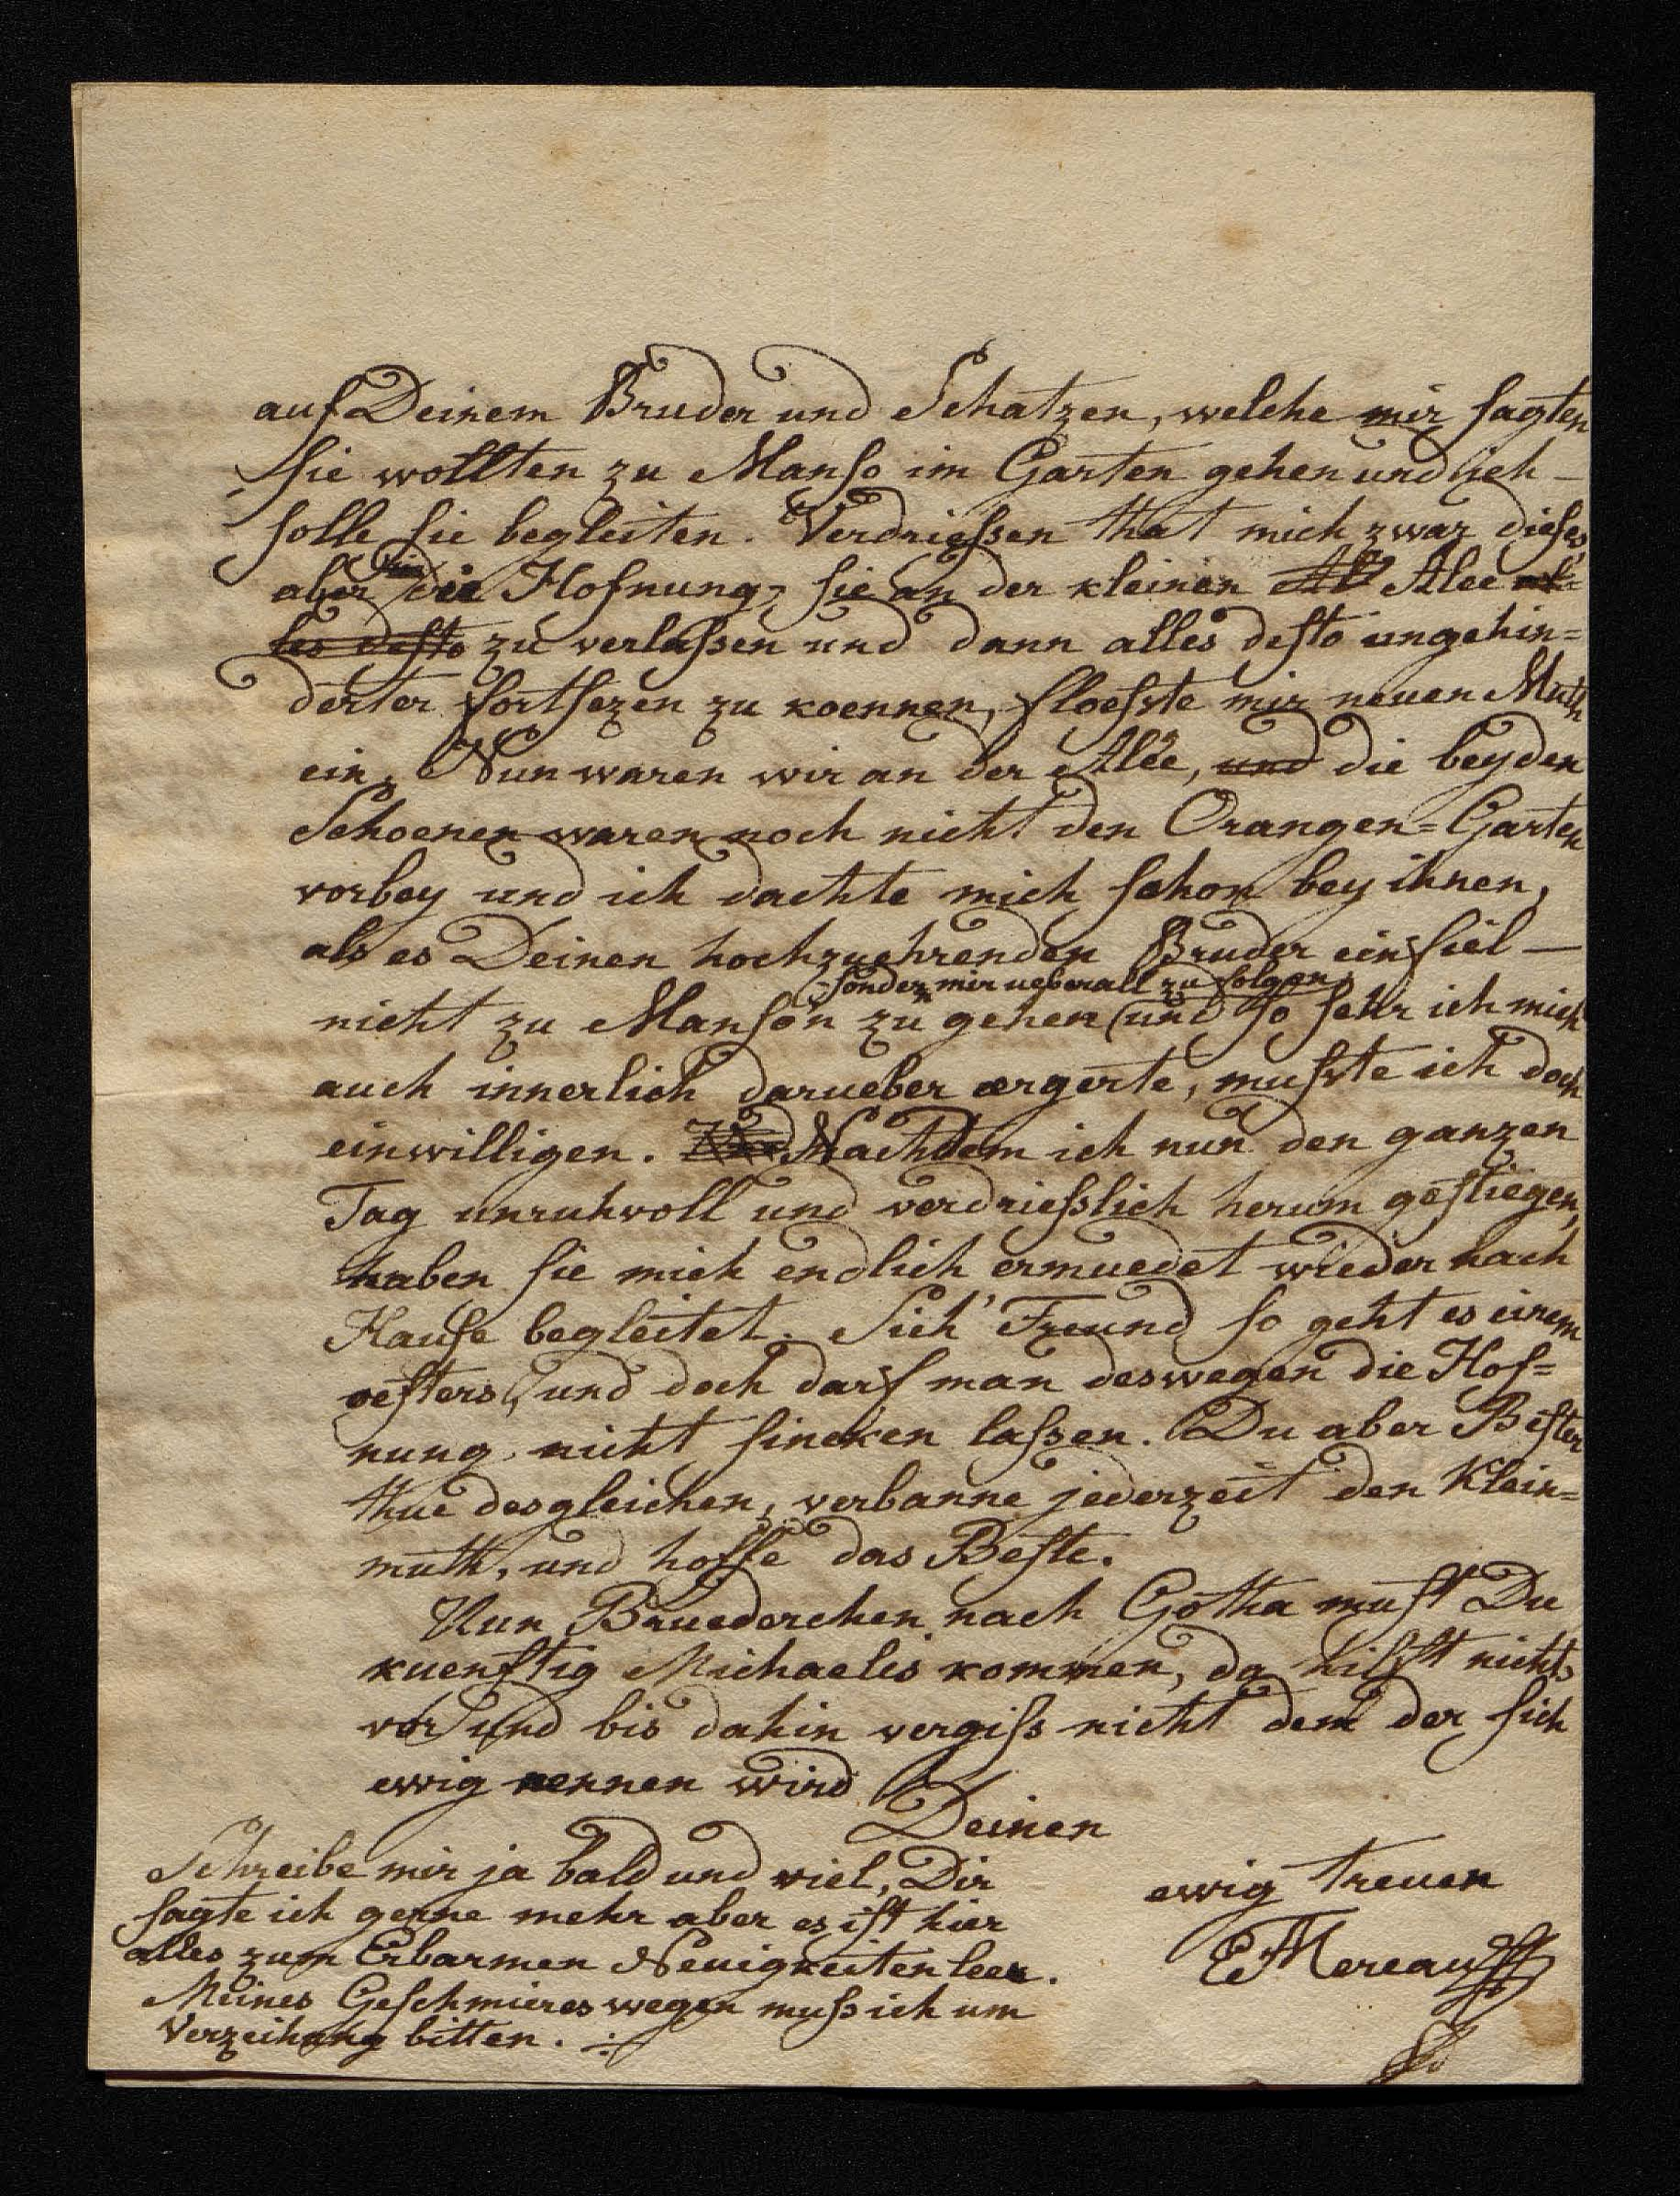 auf Deinem Bruder und Schatzen, welche mir sagten
sie wollten zu Manso im Garten gehen und ich
solle sie begleiten. Verdriessen that mich zwar dieses,
aber die Hofnung, sie an der kleinen Al Alee al=
les desto zu verlassen und dann alles desto ungehin=
derter fortsezen zu koennen, floesste mir neuen Muth
ein. Nun waren wir an der Alee, und die beyden
Schoenen waren noch nicht den Orangen=Garten
vorbey und ich dachte mich schon bey ihnen,
als es Deinen hochzuehrenden Bruder einfiel —
sondern mir ueberall zu folgen,
nicht zu Manson zu gehen und so sehr ich mich
auch innerlich darueber ærgerte, musste ich doch
einwilligen. Nachdem ich nun den ganzen
Tag unruhvoll und verdriesslich herum gestiegen,
haben sie mich endlich ermuedet wieder nach
Hause begleitet. Sieh' Freund so geht es einem
oefters, und doch darf man deswegen die Hof=
nung nicht sincken lassen. Du aber Bester
thue desgleichen, verbanne jederzeit den Klein=
muth, und hoffe das Beste.
Nun Bruederchen nach Gotha must Du
kuenftig Michaelis kommen, da hilfft nichts
vor und bis dahin vergiss nicht dem der sich
ewig nennen wird
Deinen
ewig treuen
EMereau
Schreibe mir ja bald und viel, Dir
sagte ich gerne mehr aber es ist hier
alles zum Erbarmen Neuigkeiten leer.
Meines Geschmieres wegen muss ich um
Verzeihung bitten.